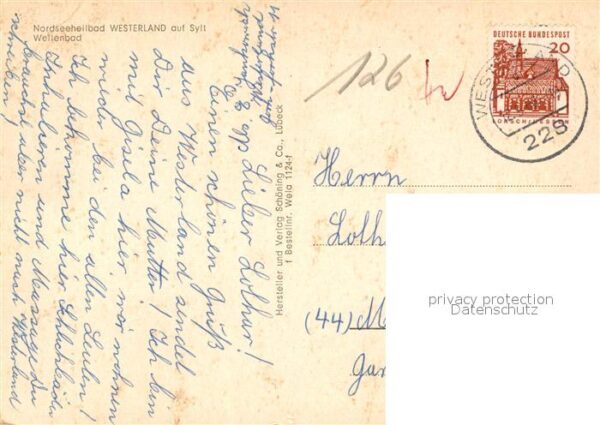 Nordseeheilbad WESTERLAND auf Sylt
Wellenbad
Lieber Lothar!
Einen schönen Gruß
aus Westerland sendet
Dir Deine Mutter! Ich bin
mit Gisela hier wir wohnen
wieder bei den alten Leuten!
Ich bekomme hier Schlickbäder
Inhalieren und Massage Du
brauchst aber nicht nach Westerland
schreiben!
Hersteller und Verlag Schöning & Co., Lübeck
f Bestellnr. Wela 1124-f
126
DEUTSCHE BUNDESPOST
20
LORSCH
228
Herrn
Loth
(44) M
Gar
privacy protection
Datenschutz